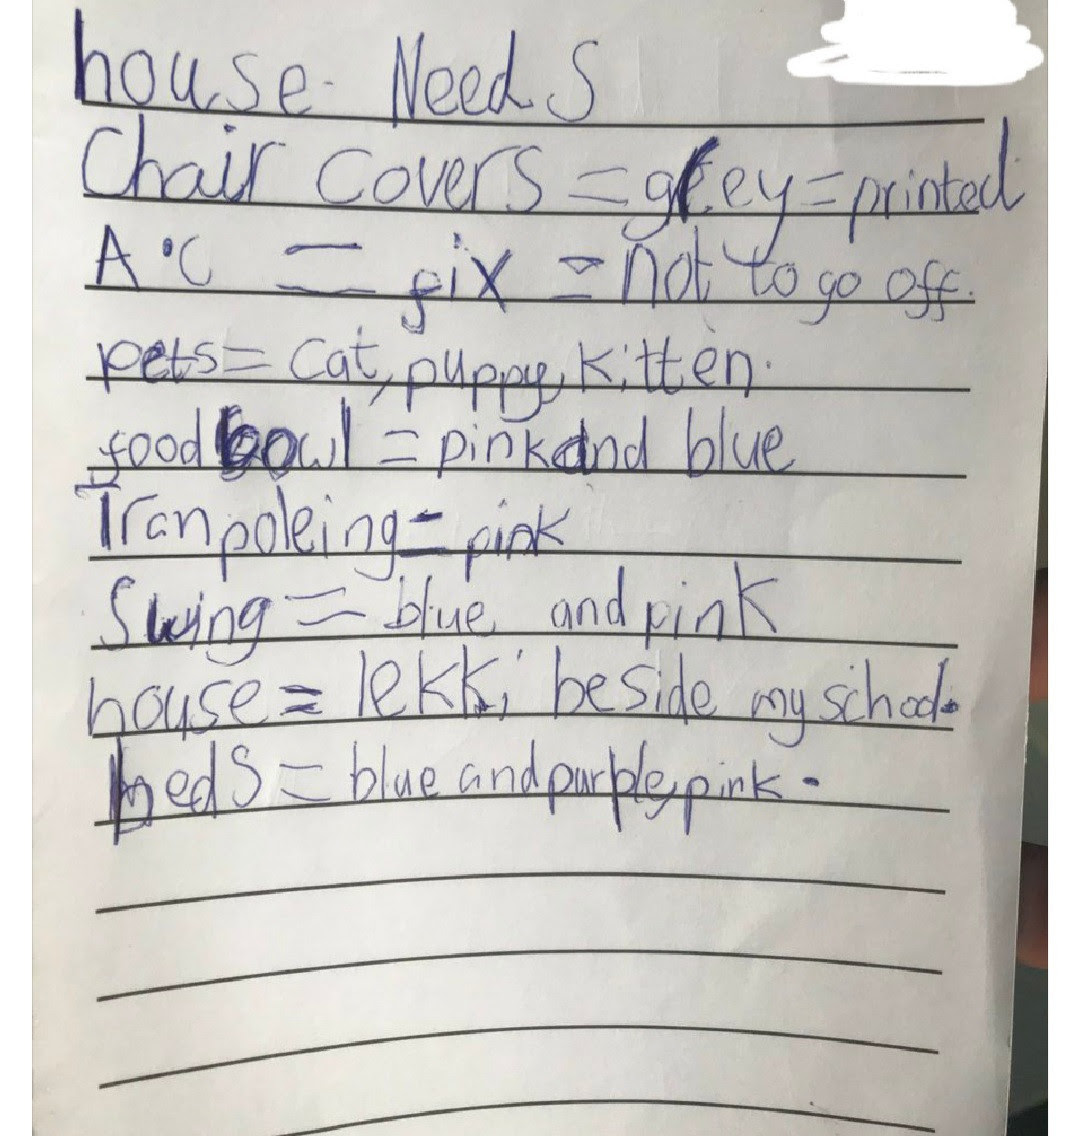 house Needs
Chair Covers = grey = printed
A.C = fix = not to go off.
pets = Cat, puppy, kitten.
food bowl = pink and blue
Tranpoleing = pink
Swing = blue and pink
house = lekki beside my school.
beds = blue and purple, pink.